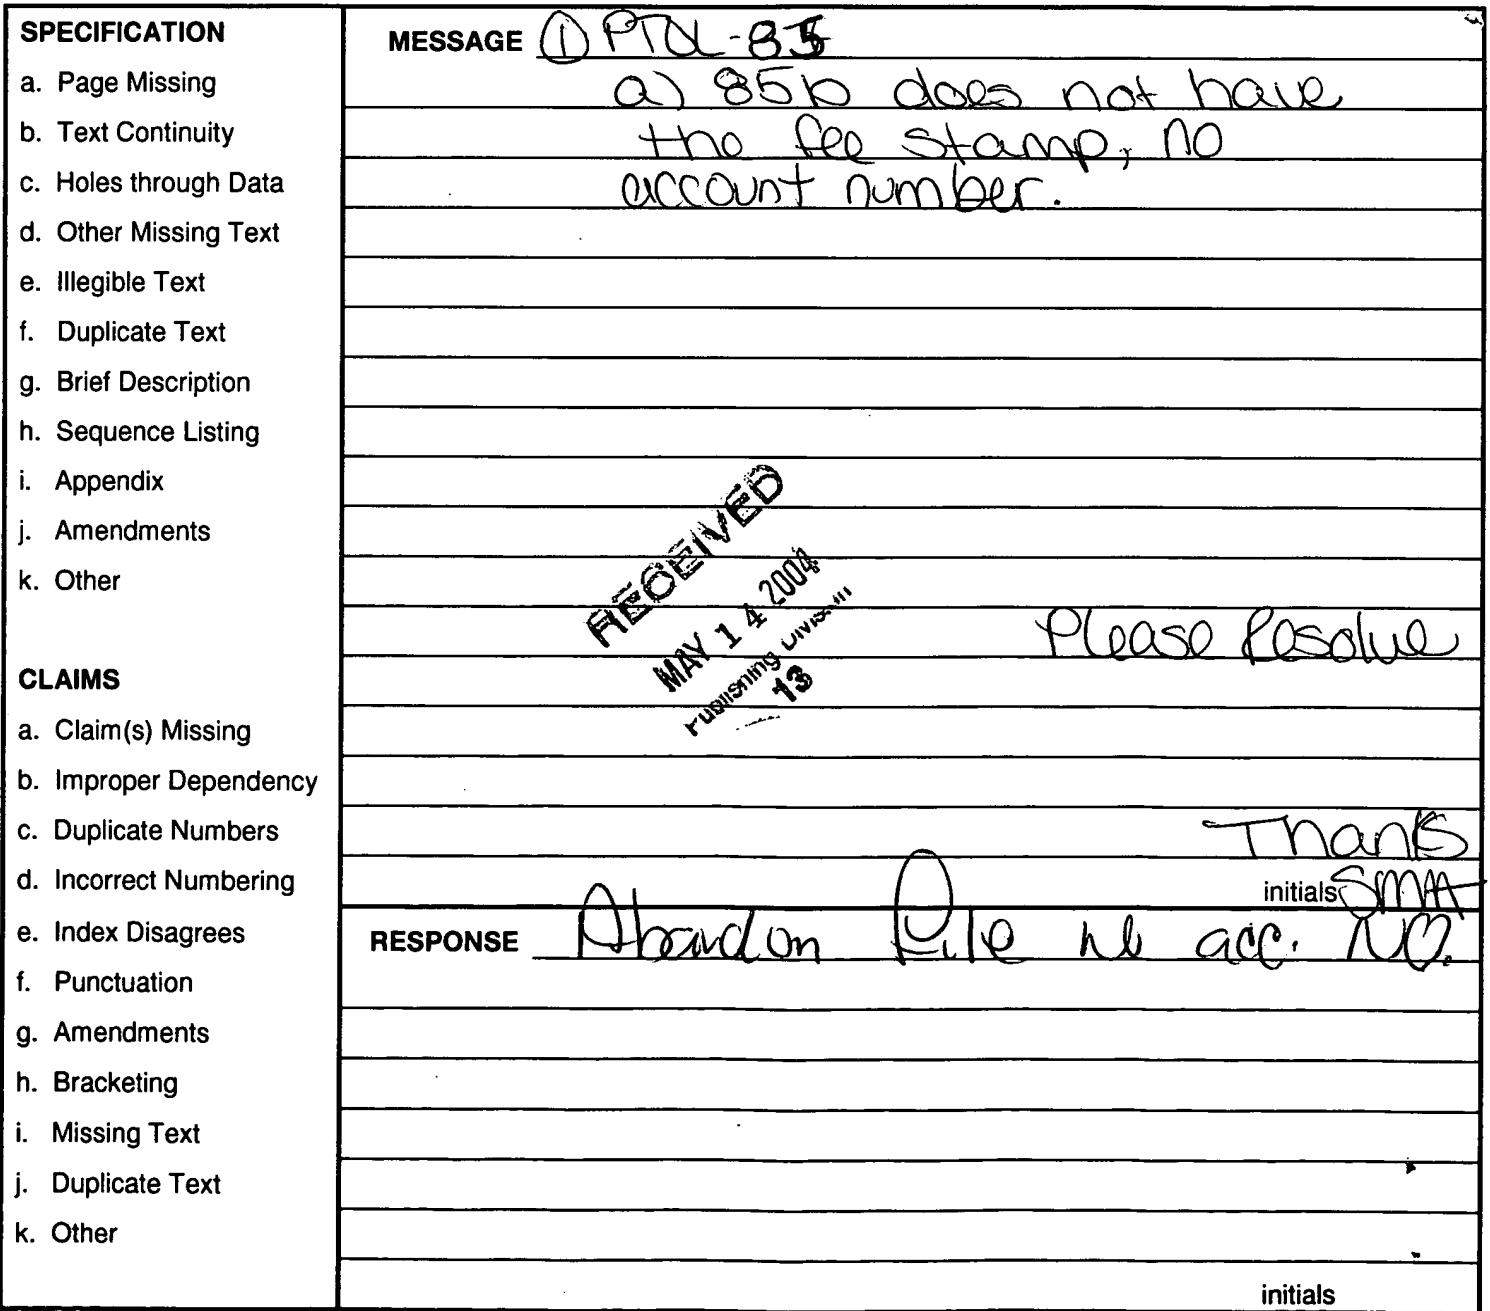 SPECIFICATION
a. Page Missing
b. Text Continuity
c. Holes through Data
d. Other Missing Text
e. Illegible Text
f. Duplicate Text
g. Brief Description
h. Sequence Listing
i. Appendix
j. Amendments
k. Other
CLAIMS
a. Claim(s) Missing
b. Improper Dependency
c. Duplicate Numbers
d. Incorrect Numbering
e. Index Disagrees
f. Punctuation
g. Amendments
h. Bracketing
i. Missing Text
j. Duplicate Text
k. Other
MESSAGE ① PTOL-85
a) 85b does not have
the fee stamp, no
account number.
RECEIVED
MAY 14 2004
Publishing Division
13
Please Resolve
Thanks
initials SMA
RESPONSE Abandon File no acc. NO.
initials